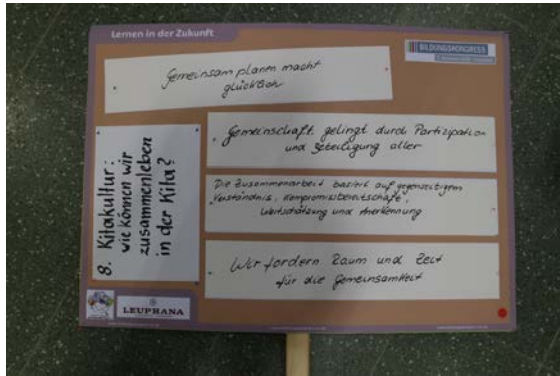 Lernen in der Zukunft
BILDUNGSKONGRESS
Gemeinsam planen macht
glücklich
8. Kitakultur:
wie können wir
zusammenleben
in der Kita?
Gemeinschaft gelingt durch Partizipation
und Beteiligung aller
Die Zusammenarbeit basiert auf gegenseitigem
Verständnis, Kompromissbereitschaft,
Wertschätzung und Anerkennung
Wir fordern Raum und Zeit
für die Gemeinsamkeit
LEUPHANA